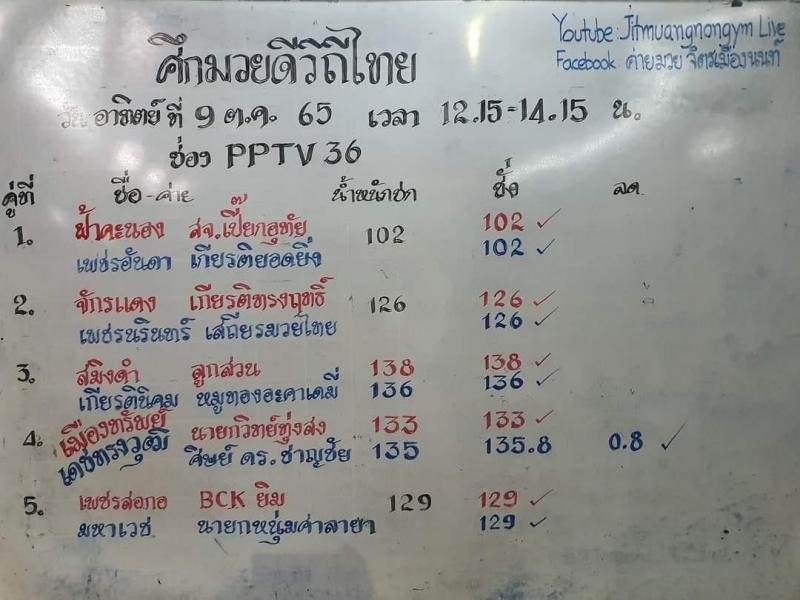 Youtube: Jitmuangnongym Live
Facebook: ค่ายมวย จิตรเมืองนนท์
ศึกมวยดีวิถีไทย
วันอาทิตย์ ที่ 9 ต.ค. 65 เวลา 12.15-14.15 น.
ช่อง PPTV 36
คู่ที่ ชื่อ-ค่าย น้ำหนักชก ชั่ง ลด
1. ฟ้าคะนอง สจ.เปี๊ยกอุทัย 102 102 ✓
เพชรอันดา เกียรติยอดยิ่ง 102 ✓
2. จักรแดง เกียรติทรงฤทธิ์ 126 126 ✓
เพชรนรินทร์ เสถียรมวยไทย 126 ✓
3. สมิงดำ ลูกสวน 138 138 ✓
เกียรตินิคม หมูทองอะคาเดมี่ 136 136 ✓
4. เมืองทรัพย์ นายกวิทย์ทุ่งสง 133 133 ✓
เดชทรงวุฒิ ศิษย์ ดร.ชาญชัย 135 135.8 0.8 ✓
5. เพชรสอกอ BCK ยิม 129 129 ✓
มหาเวช นายกหนุ่มศาลายา 129 ✓